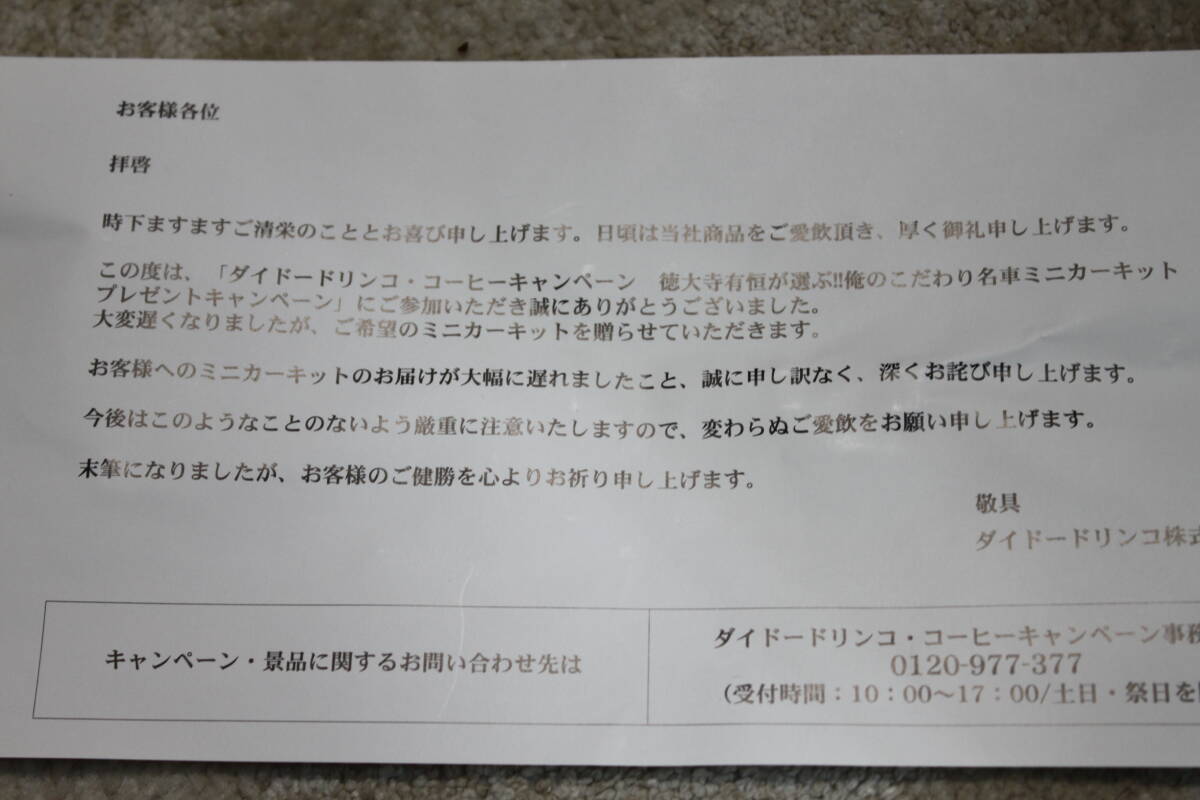 お客様各位
拝啓
時下ますますご清栄のこととお喜び申し上げます。日頃は当社商品をご愛飲頂き、厚く御礼申し上げます。
この度は、「ダイドードリンコ・コーヒーキャンペーン　徳大寺有恒が選ぶ!!俺のこだわり名車ミニカーキット
プレゼントキャンペーン」にご参加いただき誠にありがとうございました。
大変遅くなりましたが、ご希望のミニカーキットを贈らせていただきます。
お客様へのミニカーキットのお届けが大幅に遅れましたこと、誠に申し訳なく、深くお詫び申し上げます。
今後はこのようなことのないよう厳重に注意いたしますので、変わらぬご愛飲をお願い申し上げます。
末筆になりましたが、お客様のご健勝を心よりお祈り申し上げます。
敬具
ダイドードリンコ株式
キャンペーン・景品に関するお問い合わせ先は
ダイドードリンコ・コーヒーキャンペーン事務
0120-977-377
（受付時間：10：00～17：00/土日・祭日を